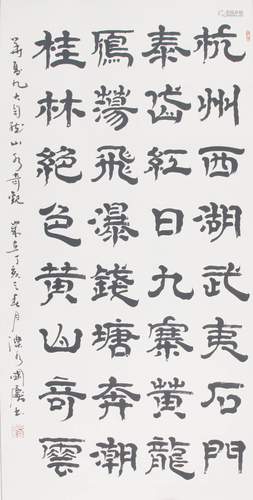 杭州西湖武夷石門
泰岱紅日九寨黃龍
鴈蕩飛瀑錢塘奔潮
桂林絕色黃山奇雲
華夏九大自然山水奇觀 歲在丁亥之春月